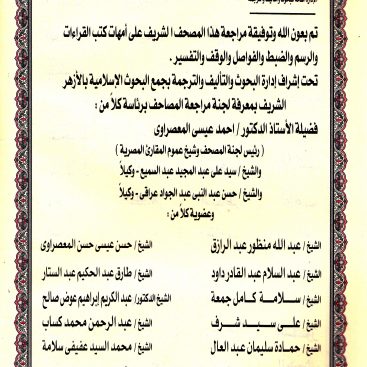 تم بعون الله وتوفيقة مراجعة هذا المصحف الشريف على أمهات كتب القراءات
والرسم والضبط والفواصل والوقف والتفسير .
تحت إشراف إدارة البحوث والتأليف والترجمة بجمع البحوث الاسلامية بالأزهر
الشريف بمعرفة لجنة مراجعة المصاحف برئاسة كلاً من :
فضيلة الأستاذ الدكتور / احمد عيسى المعصراوى
( رئيس لجنة المصحف وشيخ عموم المقارئ المصرية )
والشيخ / سيد على عبد المجيد عبد السميع - وكيلاً
والشيخ / حسن عبد النبى عبد الجواد عراقى - وكيلاً
وعضوية كلاً من :
الشيخ / عبد الله منظور عبد الرازق الشيخ / حسن عيسى حسن المعصراوى
الشيخ / عبد السلام عبد القادر داود الشيخ / طارق عبد الحكيم عبد الستار
الشيخ / سلامة كامل جمعة الشيخ الدكتور / عبد الكريم إبراهيم عوض صالح
الشيخ / على سيد شرف الشيخ / عبد الرحمن محمد كساب
الشيخ / حمادة سليمان عبد العال الشيخ / محمد السيد عفيفى سلامة